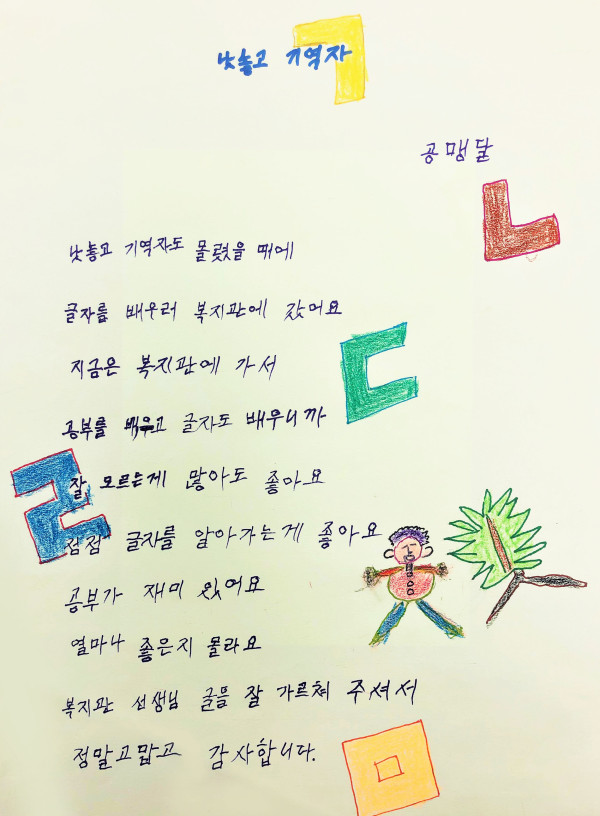 낫놓고 기역자
공맹달
낫놓고 기역자도 몰렀을 때에
글자를 배우러 복지관에 갔어요
지금은 복지관에 가서
공부를 배우고 글자도 배우니까
잘 모르는게 많아도 좋아요
점점 글자를 알아가는게 좋아요
공부가 재미 있어요
열마나 좋은지 몰라요
복지관 선생님 글뜰 잘 가르쳐 주셔서
정말고맙고 감사합니다.
ㄱ
ㄴ
ㄷ
ㄹ
ㅁ